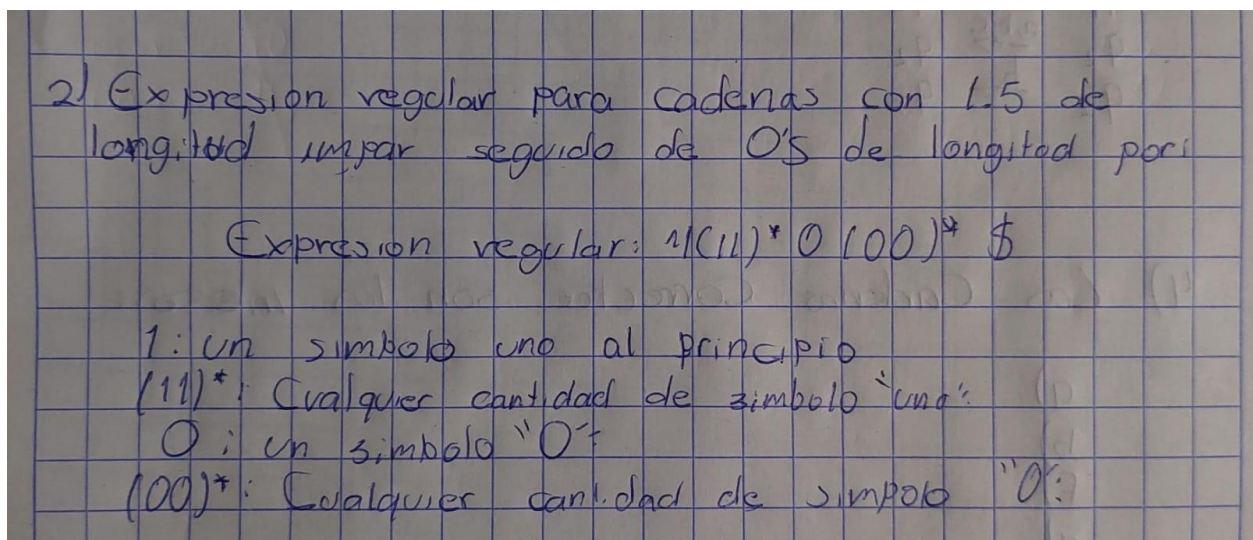 2) Expresion regular para cadenas con 1.5 de
longitud impar seguido de 0'S de longitud par:
Expresion regular: 1(11)* 0 (00)* $
1: un simbolo uno al principio
(11)*: Cualquier cantidad de simbolo "uno".
0: un simbolo "0":
(00)*: Cualquier cantidad de simbolo "0".